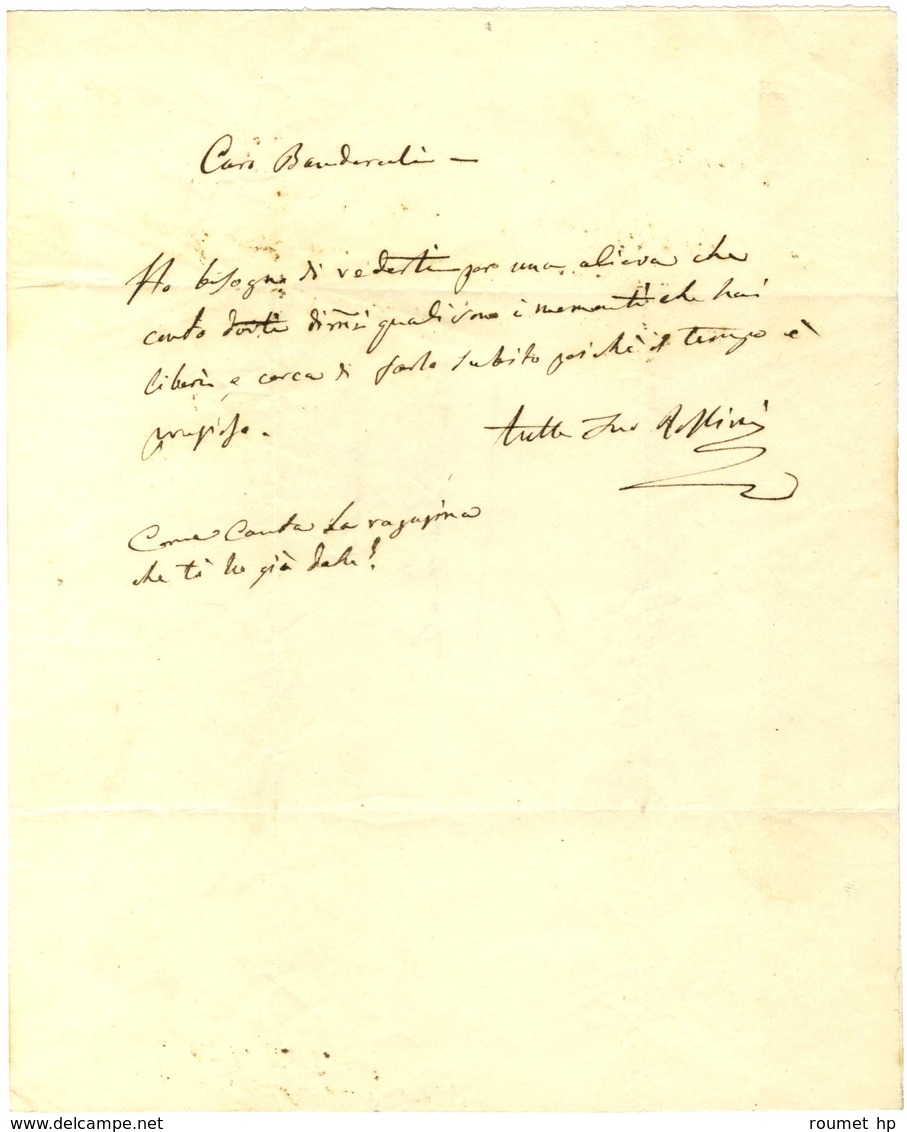 Caro Banderali —
Ho bisogno di vederti per una alieva che
conto darti dimmi quali sono i momenti che hai
liberi e cerca di farlo subito poichè il tempo è
prezioso.
tutto tuo Rossini
Come Canta La ragazina
che ti ho già data?
roumet hp